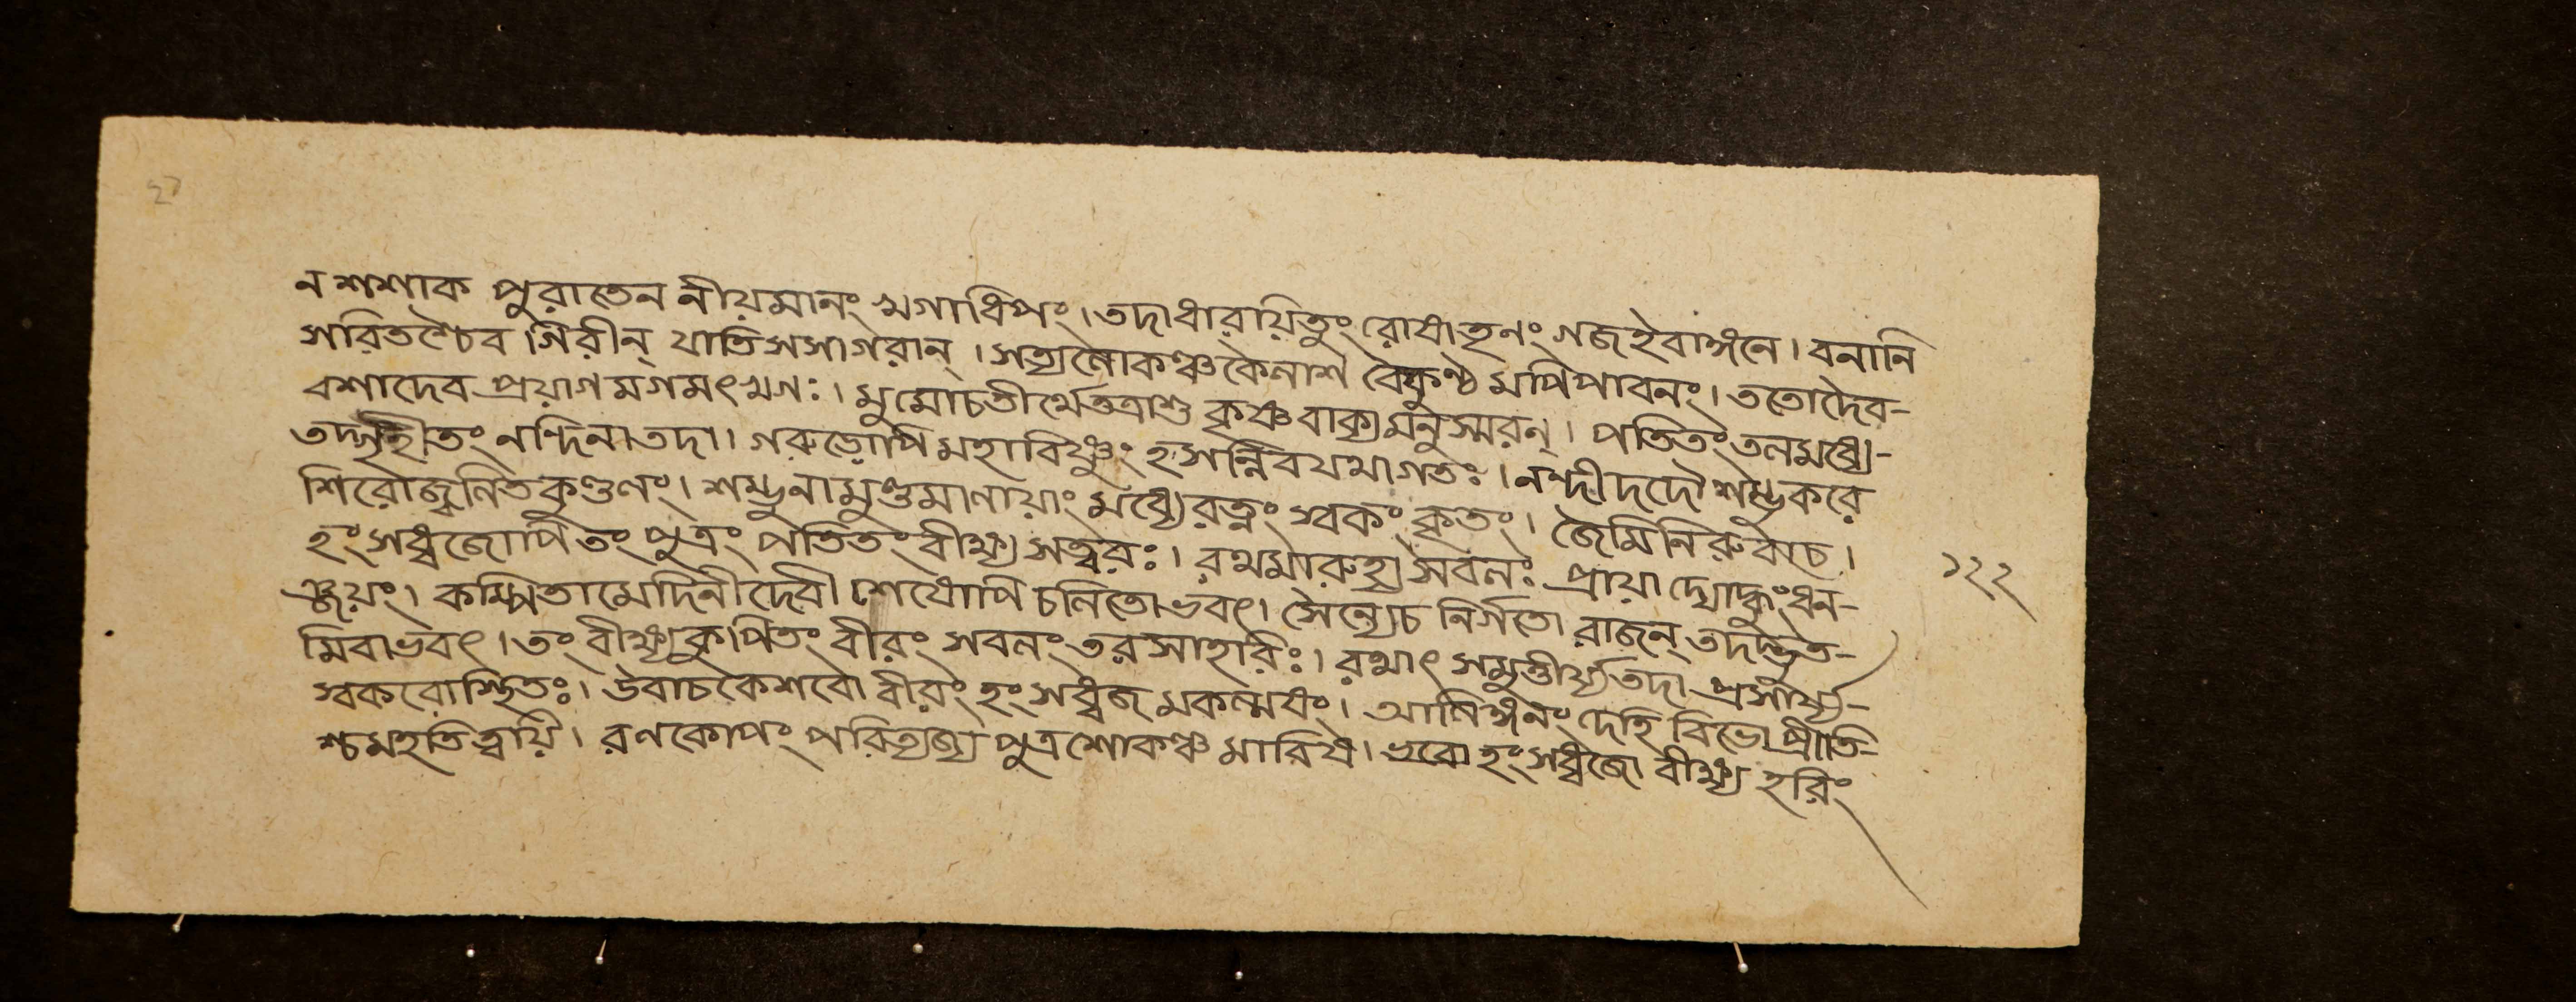 ন শশাক পুরাতেন নীয়মানং খগাধিপং। তদাধারয়িতুং রোষাত্তূনং গজইবাঙ্গনে। বনানি
সরিতশ্চৈব গিরীন্ যাতি সসাগরান্। সত্যলোকঞ্চ কৈলাশ বৈকুণ্ঠমপি পাবনং। ততোদৈব-
বশাদেব প্রয়াগমগমৎখগঃ। মুমোচতীর্থেতত্রাশু কৃষ্ণবাক্যমনুস্মরন্। পতিতং তলমধ্যে-
তদ্গৃহীতং নন্দিনাতদা। গরুড়োপি মহাবিষ্ণুং হসন্নিবযমাগতঃ। নন্দীদদৌশম্ভুকরে
শিরোজ্বলিতকুণ্ডলং। শম্ভুনামুণ্ডমালায়াং মধ্যেরত্নং স্বকং কৃতং। জৈমিনিরুবাচ।
হংসধ্বজোপিতং পুত্রং পতিতং বীক্ষ্য সত্বরঃ। রথমারুহ্যসবলঃ প্রায়াদ্যোদ্ধুং ধন-
ঞ্জয়ং। কম্পিতামেদিনীদেবী শেষোপি চলিতোভবৎ। সৈন্যেচ নির্গতে রাজন্ তদদ্ভুত-
মিবাভবৎ। তং বীক্ষ্যকুপিতং বীরং সবলং তরসাহরিঃ। রথাৎ সমুত্তীর্য্যতদা প্রসার্য্য-
স্বকরোস্থিতঃ। উবাচকেশবো বীরং হংসধ্বজমকল্মষং। আলিঙ্গনং দেহি বিভো প্রীতি-
শ্চমহতি ত্বয়ি। রণকোপং পরিত্যজ্য পুত্রশোকঞ্চ মারিষ। হংসধ্বজো বীক্ষ্য হরিং
১২২